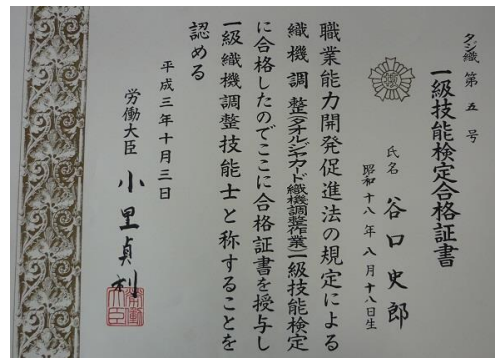 タジ織第五号
一級技能検定合格証書
氏名 谷口史郎
昭和十八年八月十八日生
職業能力開発促進法の規定による
織機調整(タオルジヤカード織機調整作業)一級技能検定
に合格したのでここに合格証書を授与し
一級織機調整技能士と称することを
認める
平成三年十月三日
労働大臣 小里貞利